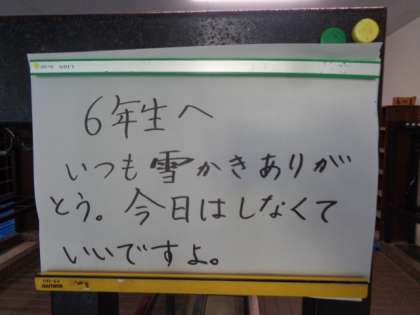 6年生へ
いつも雪かきありが
とう。今日はしなくて
いいですよ。